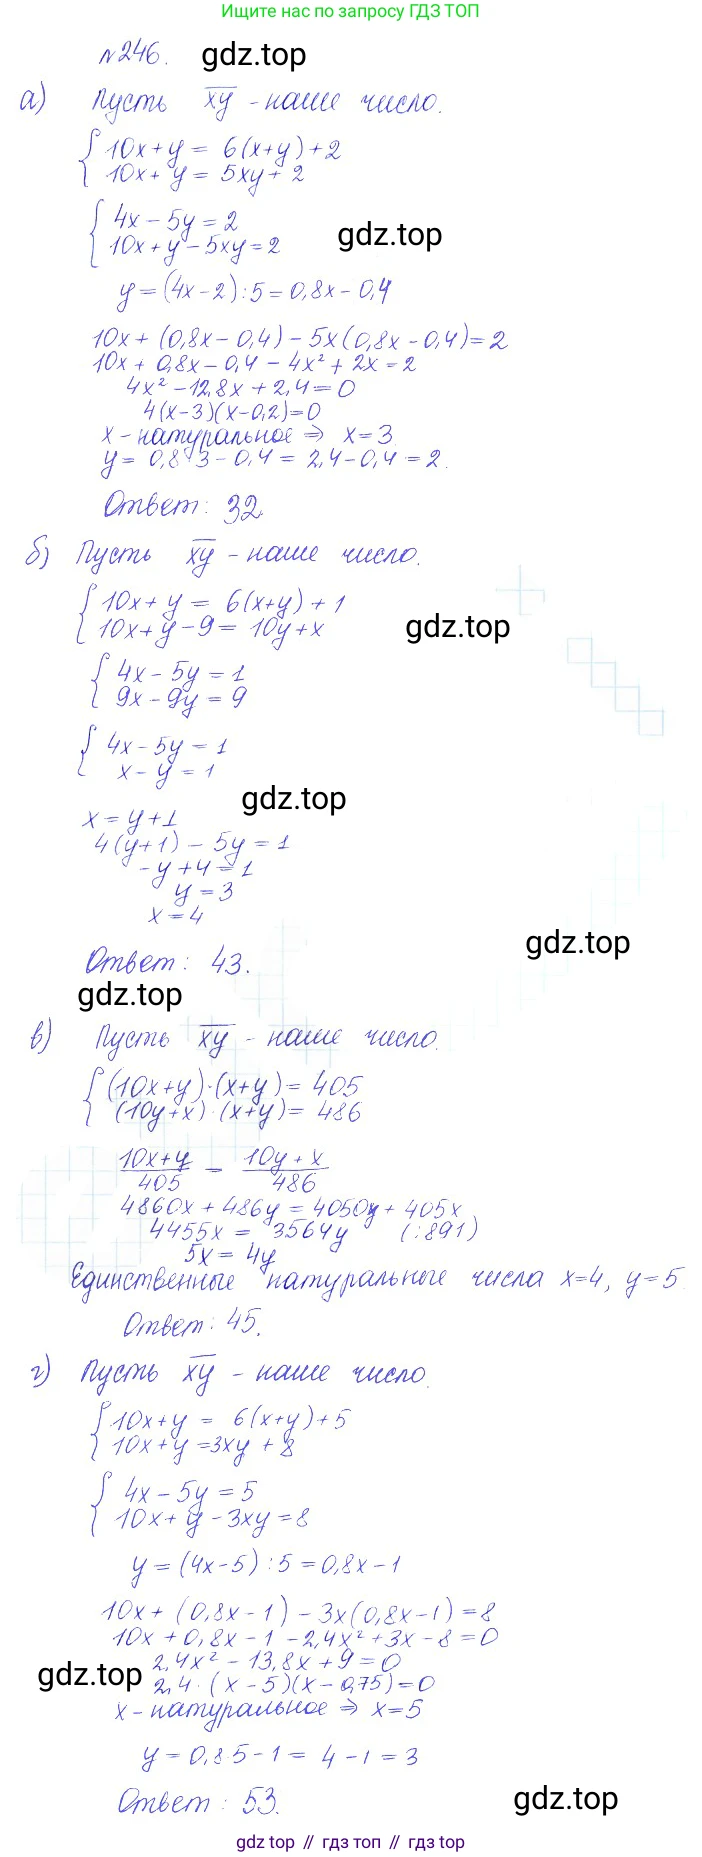 Ищите нас по запросу ГДЗ ТОП
№246. gdz.top
а) Пусть xy - наше число.
{10x+y = 6(x+y)+2
10x+y = 5xy+2
{4x-5y=2
10x+y-5xy=2
gdz.top
y=(4x-2):5=0,8x-0,4
10x+(0,8x-0,4)-5x(0,8x-0,4)=2
10x+0,8x-0,4-4x²+2x=2
4x²-12,8x+2,4=0
4(x-3)(x-0,2)=0
x-натуральное ⇒ x=3
y= 0,8·3-0,4=2,4-0,4=2.
Ответ: 32.
б) Пусть xy - наше число.
{10x+y = 6(x+y)+1
10x+y-9=10y+x
gdz.top
{4x-5y=1
9x-9y=9
{4x-5y=1
x-y=1
gdz.top
x=y+1
4(y+1)-5y=1
-y+4=1
y=3
x=4
gdz.top
Ответ: 43.
gdz.top
в) Пусть xy - наше число.
{(10x+y)·(x+y)=405
(10y+x)·(x+y)=486
10x+y/405 = 10y+x/486
4860x+486y=4050y+405x
4455x = 3564y (:891)
5x=4y
Единственные натуральные числа x=4, y=5.
Ответ: 45.
г) Пусть xy - наше число.
{10x+y = 6(x+y)+5
10x+y=3xy+8
{4x-5y=5
10x+y-3xy=8
y=(4x-5):5=0,8x-1
10x+(0,8x-1)-3x(0,8x-1)=8
10x+0,8x-1-2,4x²+3x-8=0
2,4x²-13,8x+9=0
gdz.top
2,4·(x-5)(x-0,75)=0
x-натуральное ⇒ x=5
y=0,8·5-1=4-1=3
Ответ: 53.
gdz.top
gdz top // гдз топ // gdz top